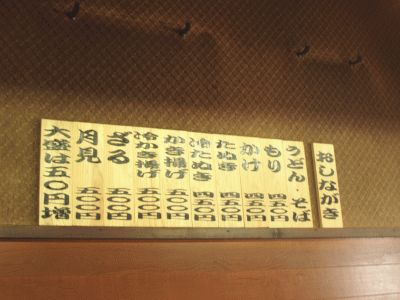 おしながき
うどん そば
もり 四五〇円
かけ 四五〇円
たぬき 四五〇円
冷たぬき 五〇〇円
かき揚げ 五〇〇円
冷かき揚げ 五〇〇円
ざる 五〇〇円
月見 五〇〇円
大盛は五〇円増